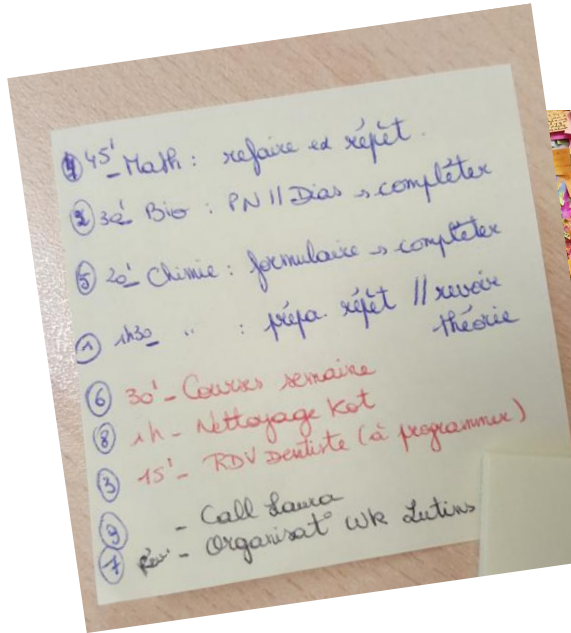 ④ 45' - Math : refaire ex répét.
② 30' Bio : PN // Dias → compléter
⑤ 20' Chimie : formulaire → compléter
① 1h30 - " : prépa. répét // revoir
théorie
⑥ 30' - Courses semaine
⑧ 1h - Nettoyage Kot
③ 15' - RDV Dentiste (à programmer)
⑨ - Call Laura
⑦ - Organisat° WK Lutins